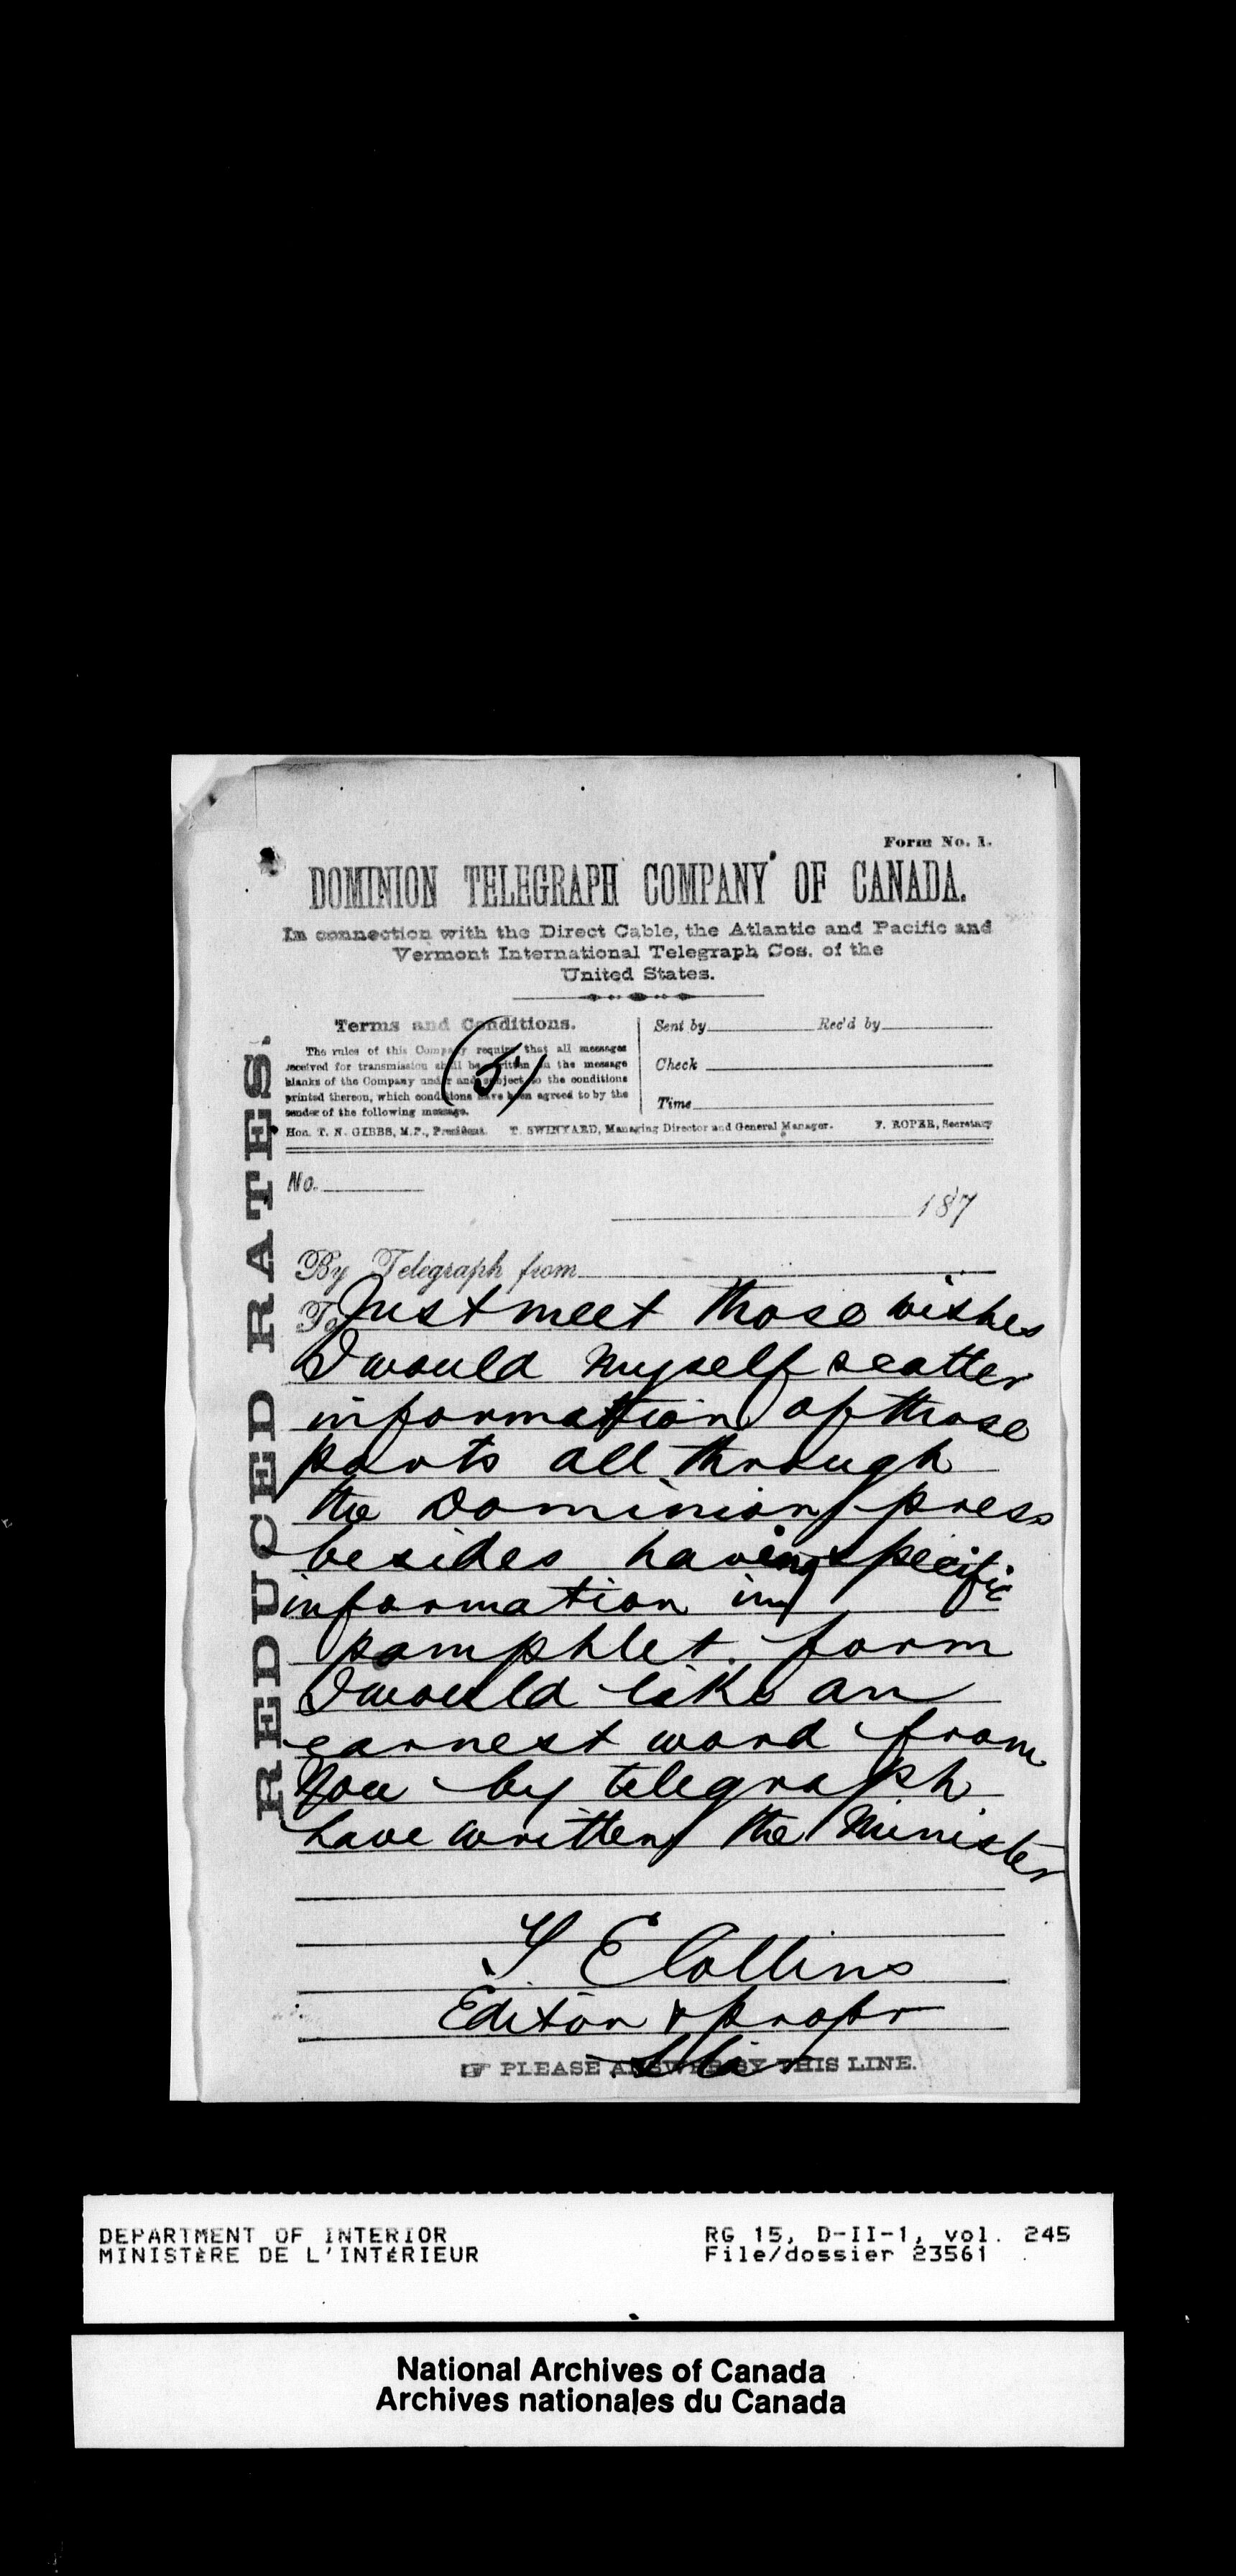 Form No. 1.
DOMINION TELEGRAPH COMPANY OF CANADA.
In connection with the Direct Cable, the Atlantic and Pacific and
Vermont International Telegraph Cos. of the
United States.
Terms and Conditions.
(5)
The rules of this Company require that all messages
received for transmission shall be written on the message
blanks of the Company under and subject to the conditions
printed thereon, which conditions have been agreed to by the
sender of the following message.
Sent by Rec'd by
Check
Time
Hon. T. N. GIBBS, M.P., President. T. SWINYARD, Managing Director and General Manager. F. ROPER, Secretary
REDUCED RATES.
No.
187
By Telegraph from
To
Just meet those wishes
I would myself scatter
information of those
parts all through
the Dominion press
besides having specific
information in
pamphlet form
I would like an
earnest word from
You by telegraph
have written the Minister
E Collins
Editor & propr
PLEASE ANSWER BY THIS LINE.
DEPARTMENT OF INTERIOR
MINISTÈRE DE L'INTÉRIEUR
RG 15, D-II-1, vol. 245
File/dossier 23561
National Archives of Canada
Archives nationales du Canada